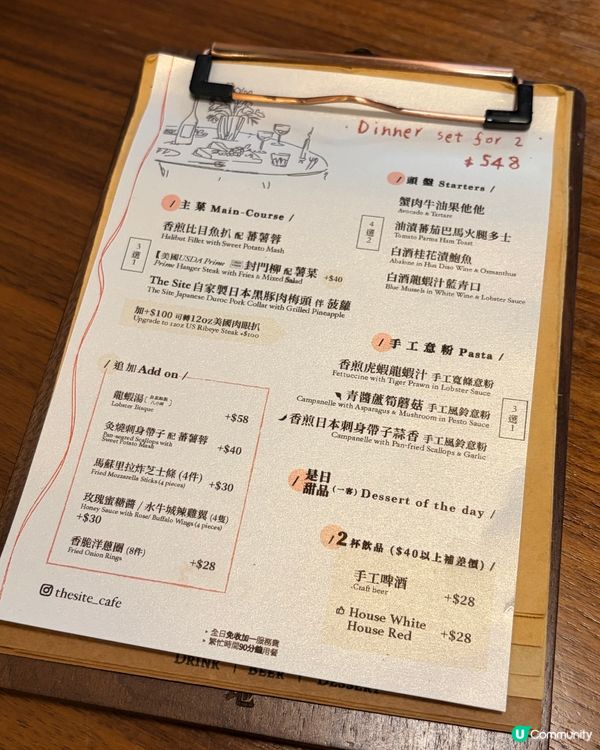 Dinner set for 2
$548
/ 頭盤 Starters /
4選2
蟹肉牛油果他他
Avocado & Tartare
油漬蕃茄巴馬火腿多士
Tomato Parma Ham Toast
白酒桂花漬鮑魚
Abalone in Hua Diao Wine & Osmanthus
白酒龍蝦汁藍青口
Blue Mussels in White Wine & Lobster Sauce
/ 主菜 Main-Course /
3選1
香煎比目魚扒 配 蕃薯蓉
Halibut Fillet with Sweet Potato Mash
美國USDA Prime 封門柳 配 薯菜 +$40
Prime Hanger Steak with Fries & Mixed Salad
The Site 自家製日本黑豚肉梅頭 伴 菠蘿
The Site Japanese Duroc Pork Collar with Grilled Pineapple
加+$100 可轉12oz美國肉眼扒
Upgrade to 12oz US Ribeye Steak +$100
/ 手工意粉 Pasta /
3選1
香煎虎蝦龍蝦汁 手工寬條意粉
Fettuccine with Tiger Prawn in Lobster Sauce
青醬蘆筍蘑菇 手工風鈴意粉
Campanelle with Asparagus & Mushroom in Pesto Sauce
香煎日本刺身帶子蒜香 手工風鈴意粉
Campanelle with Pan-fried Scallops & Garlic
/ 追加 Add on /
龍蝦湯
Lobster Bisque
+$58
灸燒刺身帶子 配 蕃薯蓉
Pan-seared Scallops with
Sweet Potato Mash
+$40
馬蘇里拉炸芝士條 (4件)
Fried Mozzarella Sticks (4 pieces)
+$30
玫瑰蜜糖醬 / 水牛城辣雞翼 (4隻)
Honey Sauce with Rose/ Buffalo Wings (4 pieces)
+$30
香脆洋蔥圈 (8件)
Fried Onion Rings
+$28
/ 是日甜品 (一客) Dessert of the day /
/ 2 杯飲品 ($40以上補差價) /
手工啤酒
Craft beer
+$28
House White
House Red
+$28
thesite_cafe
全日免收加一服務費
繁忙時間90分鐘用餐
DRINK | BEER | DESSERT
U Community